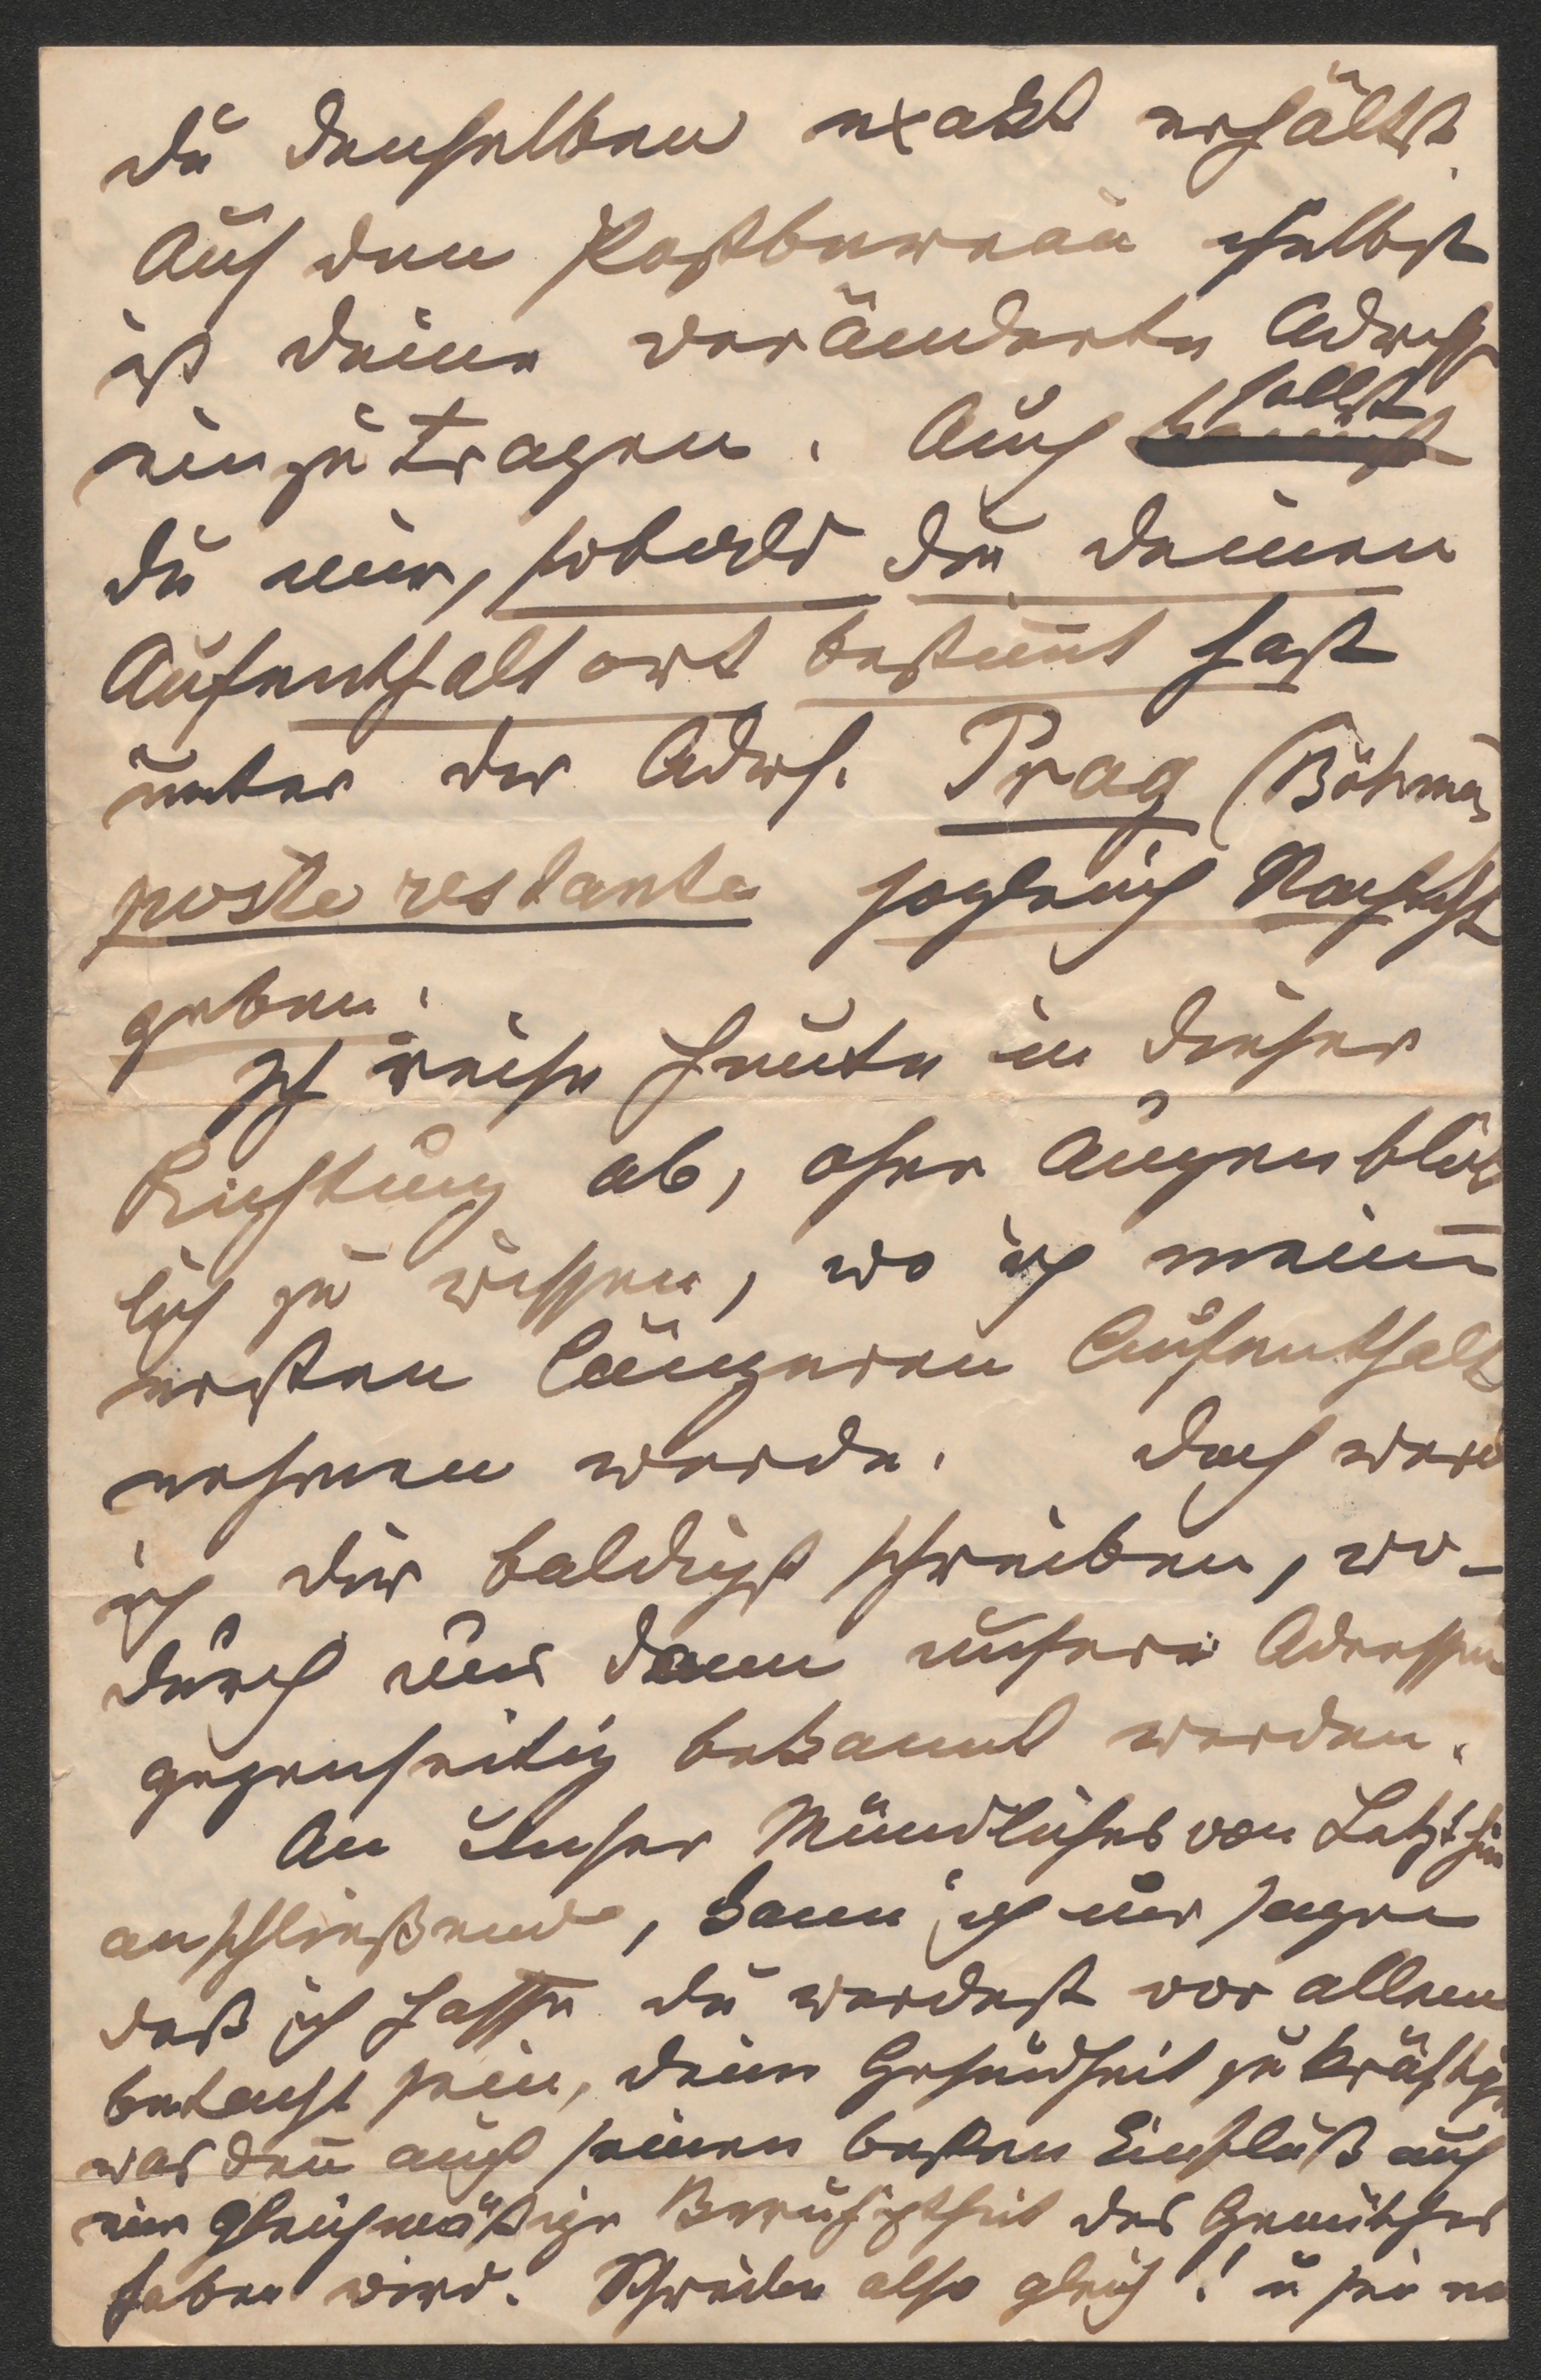 du denselben exakt erhältst.
Auf dem Postbureau selbst
ist deine veränderte Adresse
einzutragen. Auch sollst
du mir, sobald du deinen
Aufenthaltort bestimt hast
unter der Adrs. Prag (Böhmen)
poste restante sogleich Nachricht
geben.
Ich reise heute in dieser
Richtung ab, ohne augenblick
lich zu wissen, wo ich meinen
ersten längeren Aufenthalt
nehmen werde. Doch werd
ich dir baldigst schreiben, wo-
durch uns dann unsere Adressen
gegenseitig bekannt werden.
An unser Mündliches von Letzthin
anschließend, kann ich nur sagen
daß ich hoffe du werdest vor allem
bedacht sein, deine Gesundheit zu kräftigen
was den̄ auch seinen besten Einfluß auf
eine gleichmäßige Beruhigtheit des Gemüthes
haben wird. Schreibe also gleich! u sei